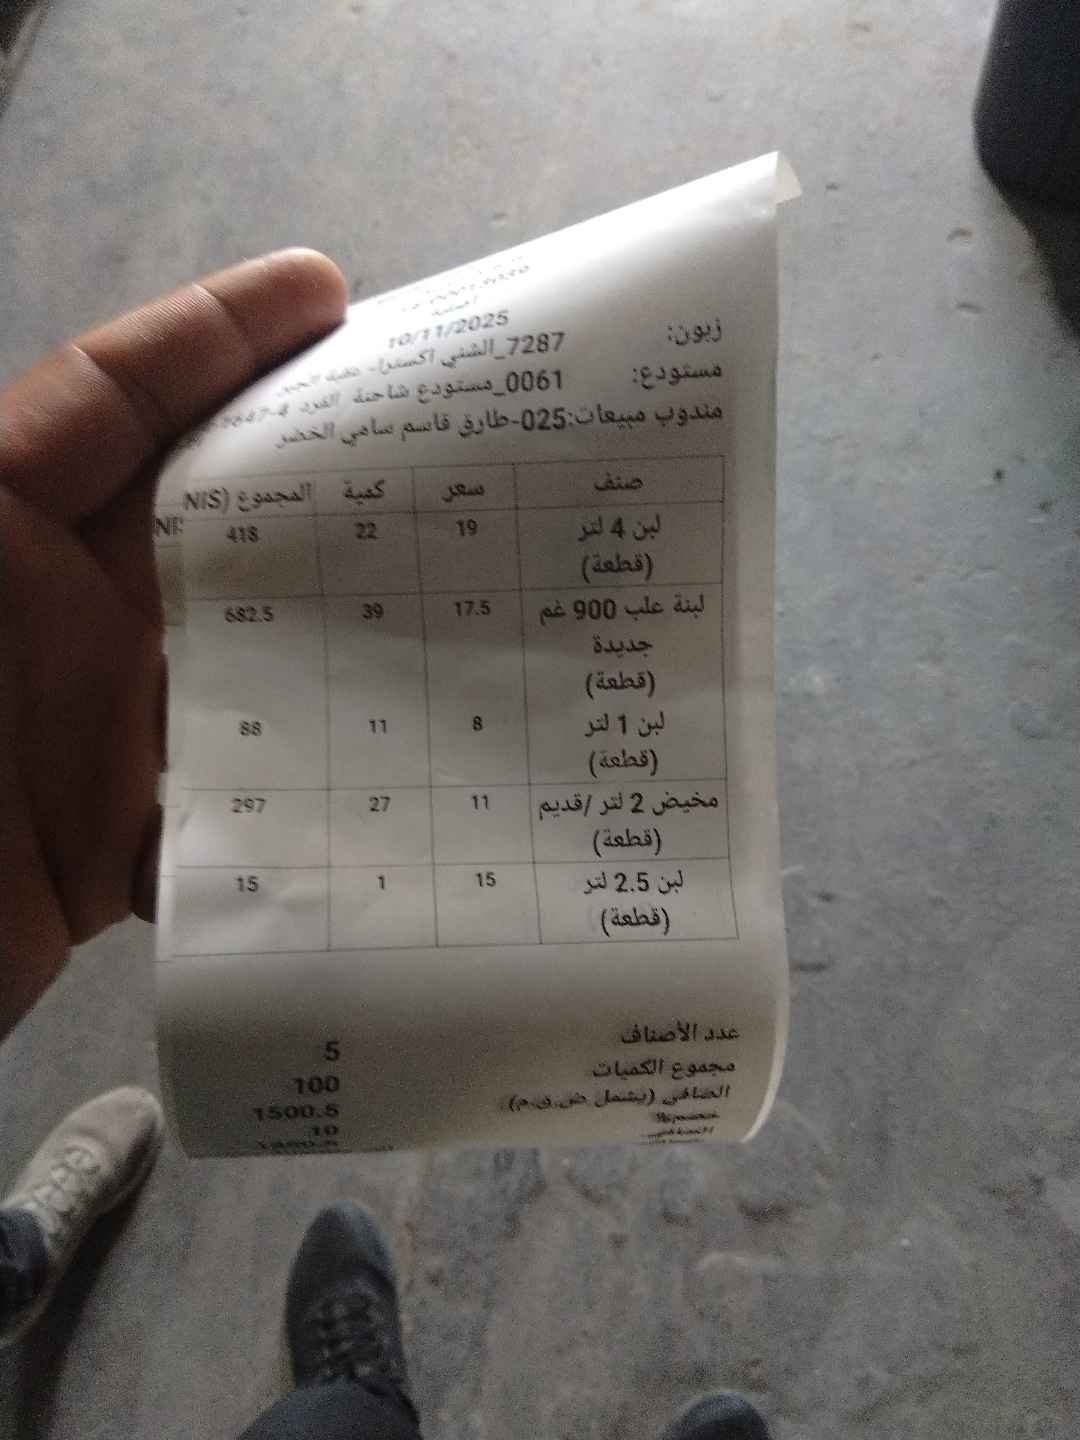 اصلية
10/11/2025
زبون: 7287_الشني اكسترا- عقبة الجبر
مستودع: 0061_مستودع شاحنة الفرد 4-1647
مندوب مبيعات:025-طارق قاسم سامي الخضر
صنف سعر كمية المجموع (NIS
لبن 4 لتر 19 22 418
(قطعة)
لبنة علب 900 غم 17.5 39 682.5
جديدة
(قطعة)
لبن 1 لتر 8 11 88
(قطعة)
مخيض 2 لتر /قديم 11 27 297
(قطعة)
لبن 2.5 لتر 15 1 15
(قطعة)
عدد الأصناف 5
مجموع الكميات 100
الصافي (يشمل ض.ق.م) 1500.5
خصم% 10
الصافي